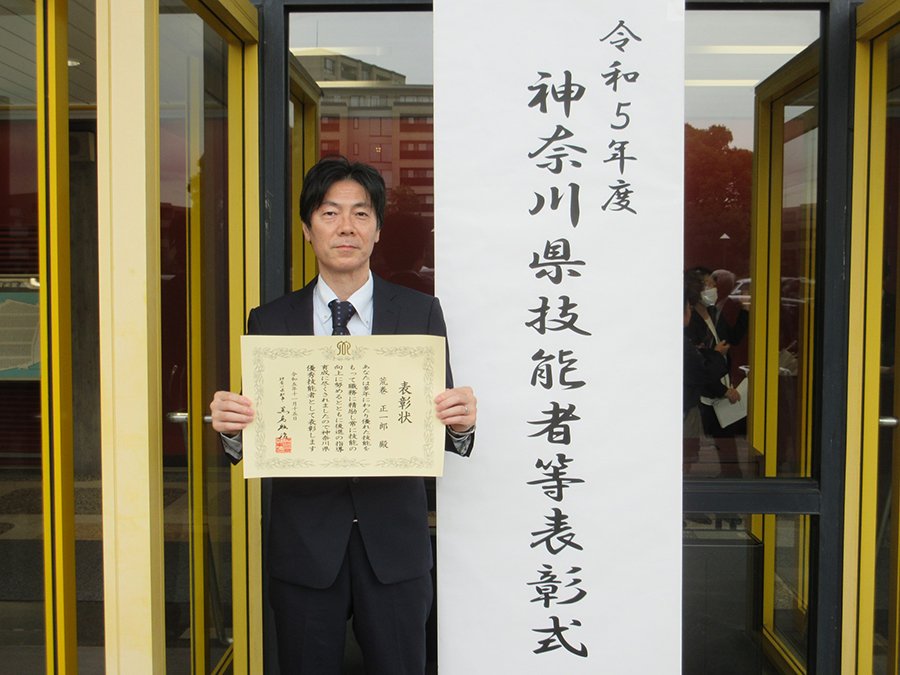 令和5年度
神奈川県技能者等表彰式
表彰状
荒巻 正一郎 殿
あなたは多年にわたり優れた技能を
もって職務に精励し常に技能の
向上に努めるとともに後進の指導
育成に尽くされましたので神奈川県
優秀技能者として表彰します
令和五年十一月十五日